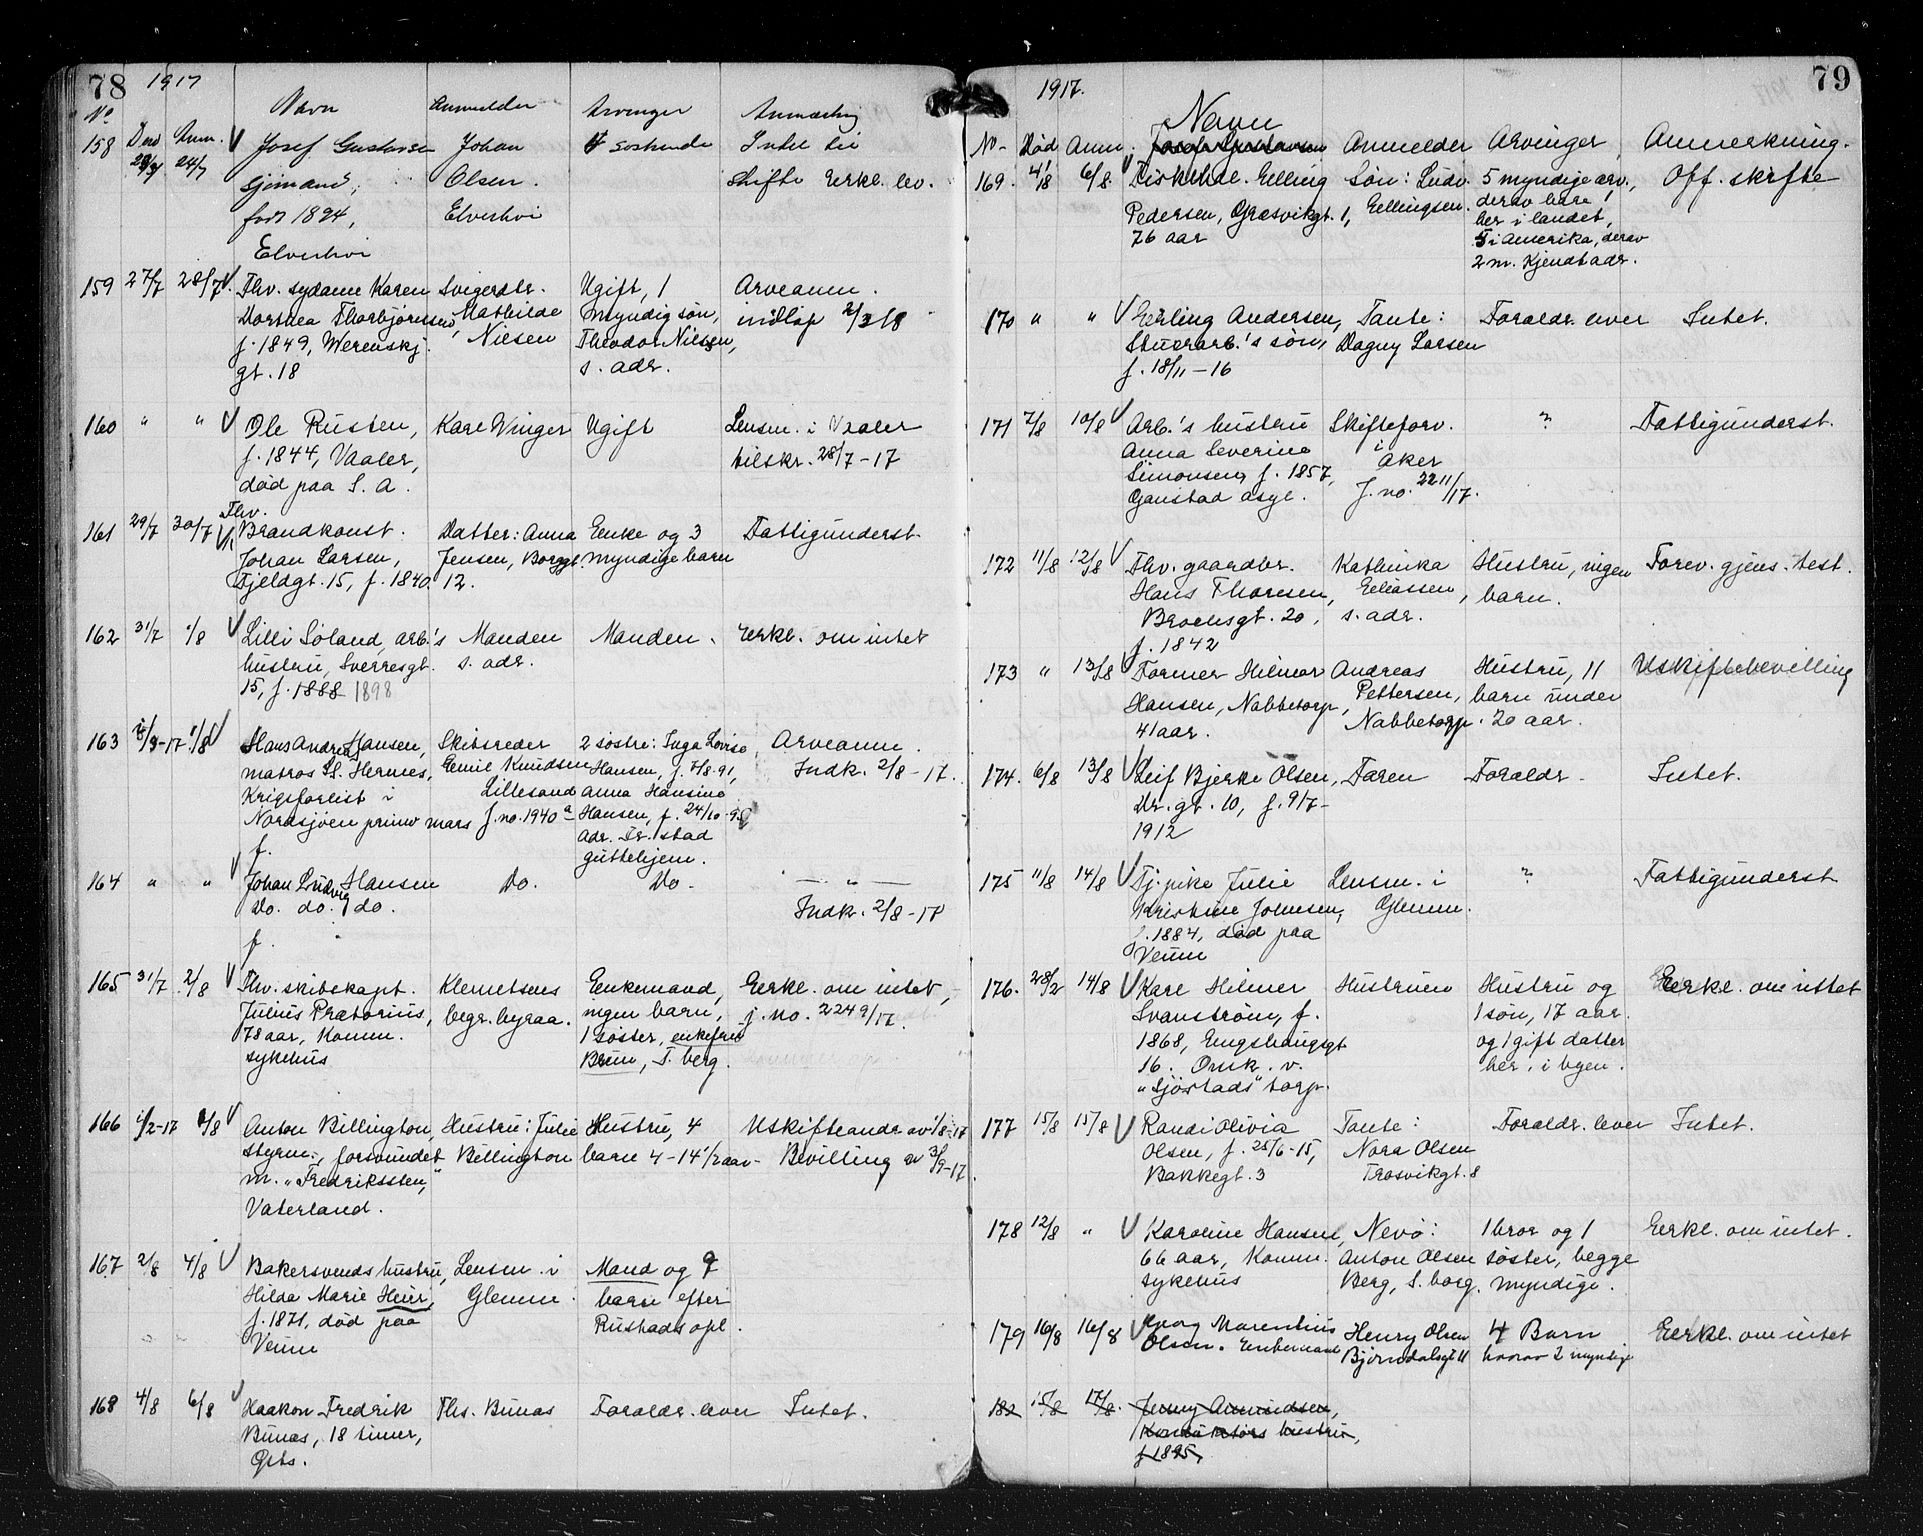 78
1917
No Død Anm. Navn Anmelder Arvinger Anmærkn
158 24/7 V Josef Gustavsen Johan 4 søskende Intet til
sjømand, Olsen. skifte Erkl. lev.
født 1894, Elverhøi
Elverhøi
159 27/7 28/7 V. Fhv. sydame Karen Svigerdtr. Ugift, 1 Arveanm.
Dorthea Thorbjørnsen, Mathilde myndig søn, indløp 2/3 18
f. 1849, Werenskj. Nilsen Theodor Nilsen,
gt. 18 s. adr.
160 " " V Ole Rusten, Kare Winger Ugift Lensm. i Vaaler
f. 1844, Vaaler, tilskr. 28/7-17
død paa S. A.
161 29/7 30/7 V Fhv. Brandkonst. Datter: Anna Enke og 3 Fattigunderst.
Johan Larsen, Jensen, Borggt. myndige barn
Fjeldgt. 15, f. 1840. 12.
162 31/7 1/8 V Lilli Søland, arb.'s Manden Manden. Erkl. om intet
hustru, Sverresgt. s. adr.
15, f. 1888 1898
163 1/8 V Hans Andreas Hansen, Skibsreder 2 søstre: Inga Lovise Arveanm.
matros S/S. Hermes, Emil Knudsen Hansen, f. 7/8-91, Indk. 2/8-17.
Krigsforlist i Lillesand Anna Hansine
Nordsjøen primo mars J. no. 1940 a Hansen, f. 24/10-95
f. adr. Fr.stad
guttehjem.
164 " " V Johan Ludvig Hansen Do. Do. — " —
Do. do. do. Indk. 2/8-17
f.
165 31/7 2/8 V Fhv. skibskapt. Klemetsens Enkemand, Erkl. om intet,
Julius Prætorius, begr. byraa. ingen barn, j. no. 2249/17.
78 aar, Komm. 1 søster, enkefru
sykehus Bruun, T. berg.
166 V Anton Billington, Hustru: Julie Hustru, 4 Uskifteandr. av 1/8-17
styrm., forsvundet Billington barn 4-14 1/2 aar- Bevilling av 3/9-17.
m. "Fredriksten,"
Vaterland.
167 2/8 4/8 V Bakersvends hustru, Lensm. i Mand og 9
Hilda Marie Heier, Glemm. barn efter
f. 1871, død paa Rustads opl.
Veum
168 4/8 6/8 V Haakon Fredrik Ths. Bunæs Forældr. lever Intet.
Bunæs, 18 timer,
Gbs.
79
1917.
No- Død Anm. Navn Anmelder Arvinger Anmerkning.
169. 4/8 6/8 V Fiskehdl. Elling Søn: Ludv. 5 myndige arv., Off. skifte
Pedersen, Græsvikgt. 1, Ellingsen. derav bare 1
76 aar her i landet,
4 i Amerika, derav
2 m. Kjendt adr.
170 " " V Erling Andersen, Tante: Forældr. lever Intet.
Stuerarb.'s søn, Dagny Larsen
f. 18/11-16
171 7/8 10/8 V Arb.'s hustru Skifteforv. ? Fattigunderst.
Anna Severine i
Simonsen, f. 1857, Aker
Gaustad asyl. J. no. 2211/17.
172 11/8 12/8 V Fhv. gaardbr. Kathinka Hustru, ingen Forev. gjens. test.
Hans Thoresen, Eliassen, barn.
Brochsgt. 20, s. adr.
f. 1842
173 " 13/8 V Former Hilmar Andreas Hustru, 11 Uskiftebevilling
Hansen, Nabbetorp, Pettersen, barn under
41 aar. Nabbetorp. 20 aar.
174. 6/8 13/8 V Leif Bjerke Olsen, Faren Forældr. Intet.
Dr. gt. 10, f. 9/7-
1912
175 11/8 14/8 V Tj. pike Julie Lensm. i ? Fattigunderst
Kristine Johnsen, Glemm.
f. 1884, død paa
Veum
176. 28/2 14/8 V Karl Hilmer Hustruen Hustru og Erkl. om intet
Svanstrøm, f. 1 søn, 17 aar.
1868, Enghaugsgt og 1 gift datter
16. Omk. v. her i byen.
"Sjøstads" torp.
177 15/8 15/8 V Randi Olivia Tante: Forældr. lever Intet.
Olsen, f. 25/6-15, Nora Olsen
Bakkegt. 3 Trosvikgt. 8
178 12/8 " V Karoline Hansen, Nevø: 1 bror og 1 Erkl. om intet.
66 aar, Komm. Anton Olsen søster, begge
sykehus Berg, S. borg. myndige.
179 16/8 16/8 V Georg Marentius Henry Olsen 4 Barn Erkl. om intet
Olsen. Enkemand Bjørndalsgt 11 hvorav 2 myndige
182 15/8 17/8. Jenny Amundsen,
Konduktørs hustru,
f 1895,